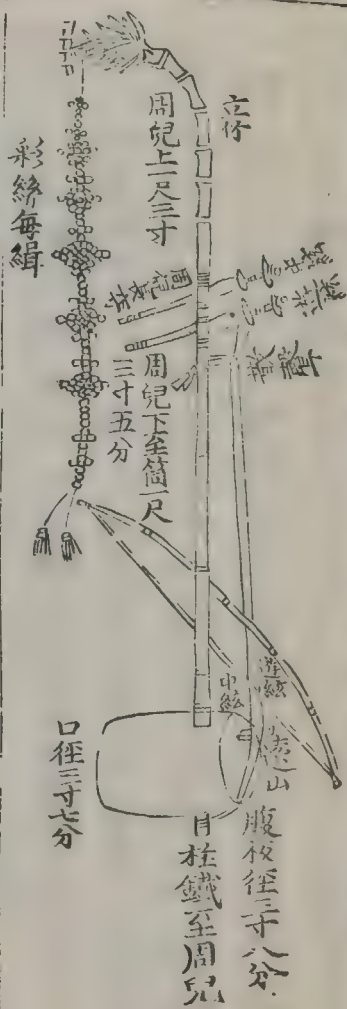 立竹
周兒上一尺三寸
彩絲每緝
周兒下至筒一尺
三寸五分
遊絃
中絃
遠山
腹板徑三寸八分
自柱鐵至周兒
口徑三寸七分